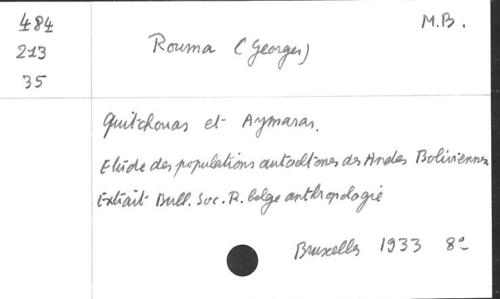 484
213
35
M.B.
Rouma (Georges)
Quitchouas et Aymaras.
Etude des populations autochtones des Andes Boliviennes
Extrait Bull. Soc. R. belge anthropologie
Bruxelles 1933 8°